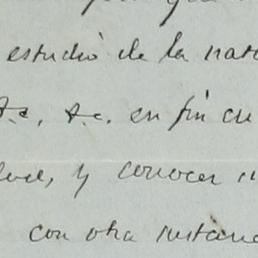 estudió de la nat
&c, &c. en fin cu
y conocer
con otra sustanc